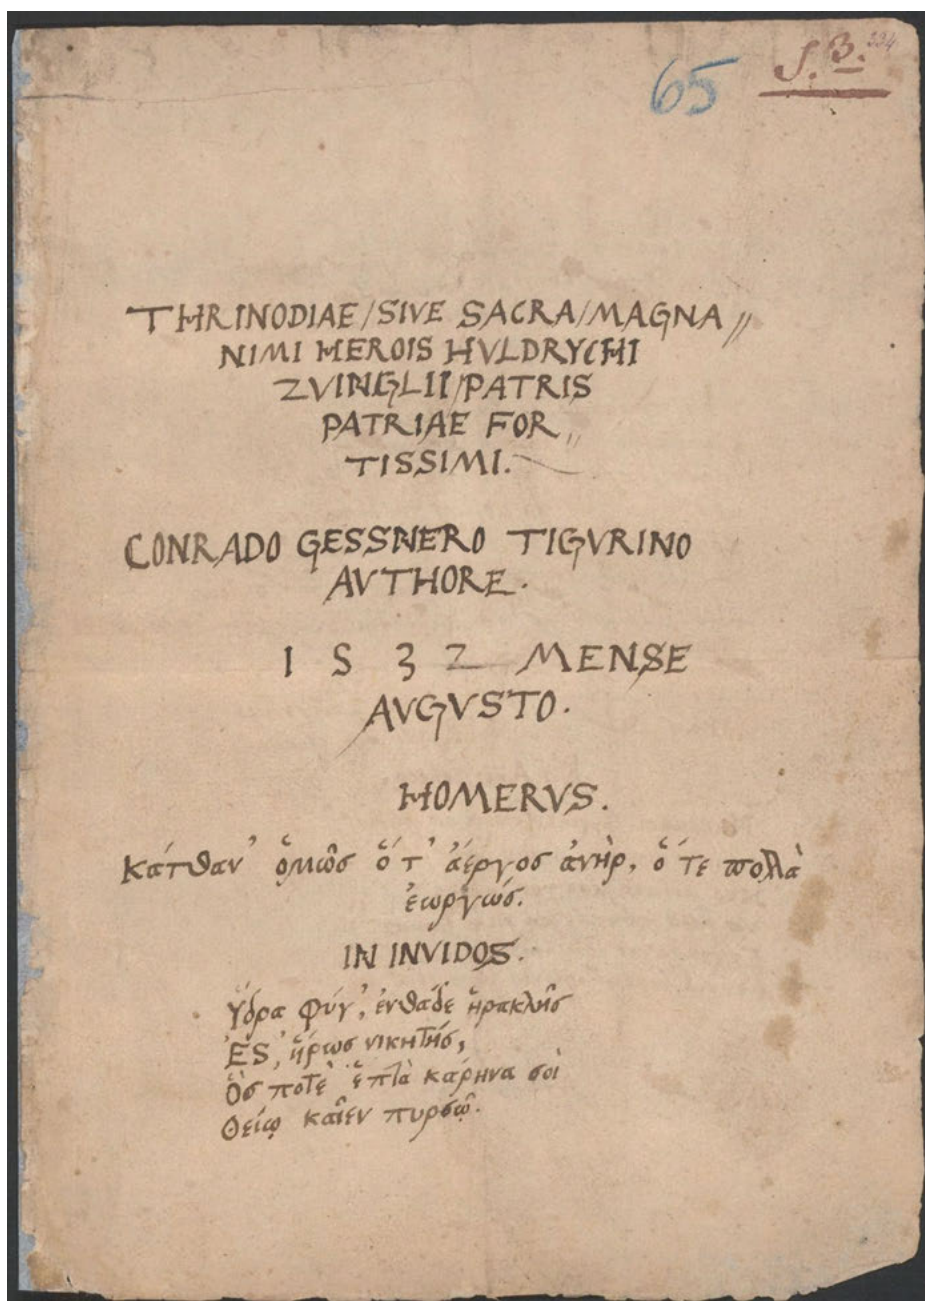 65
S. 3. 334
THRINODIAE/SIVE SACRA/MAGNA〃
NIMI HEROIS HVLDRYCHI
ZVINGLII/PATRIS
PATRIAE FOR〃
TISSIMI.
CONRADO GESSNERO TIGVRINO
AVTHORE.
1532 MENSE
AVGVSTO.
HOMERVS.
Κάτθαν' ὁμῶς ὅ τ' ἄεργος ἀνὴρ, ὅ τε πολλὰ
ἐωργώς.
IN INVIDOS.
Ὕδρα φύγ', ἐνθάδε ἡρακλῆς
ἘΣ, ἥρως νικητής,
Ὅς ποτὲ ἑπτὰ κάρηνα σοὶ
Θείῳ καῖεν πυρσῷ.